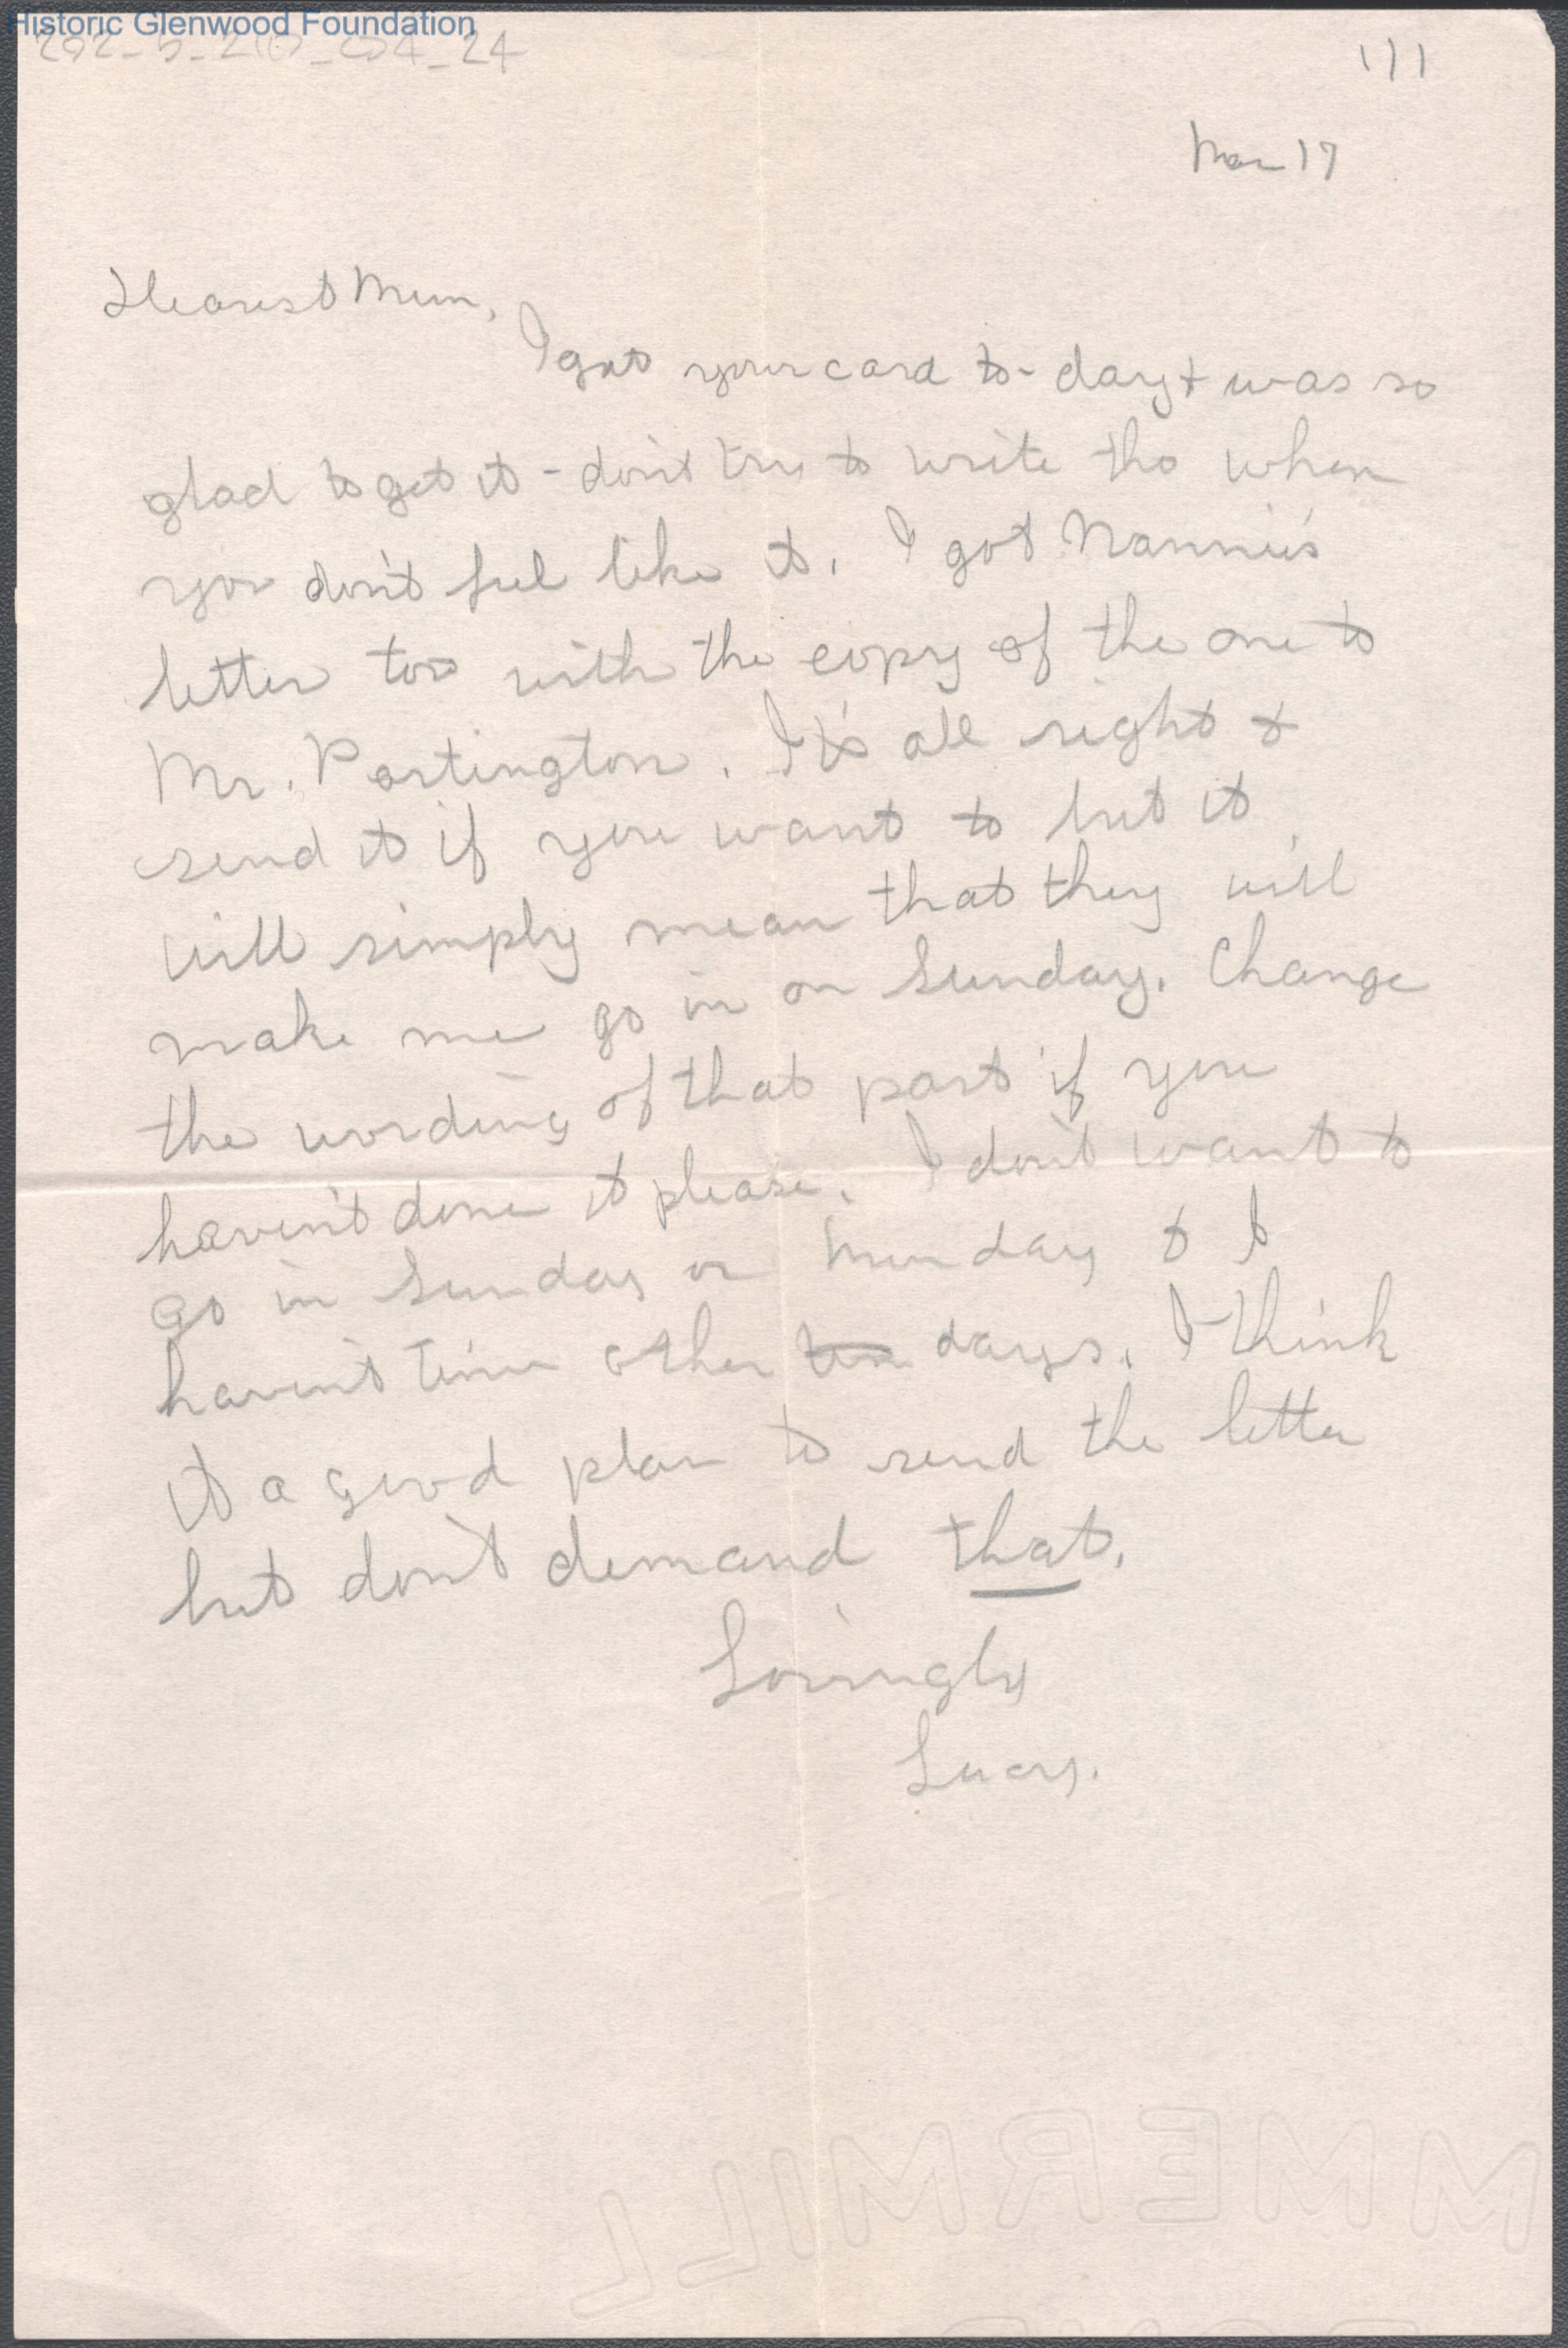 Historic Glenwood Foundation
111
Mar 17
Dearest Mum,
I got your card to-day + was so
glad to get it - don't try to write tho when
you don't feel like it. I got Nannie's
letter too with the copy of the one to
Mr. Partington. It's all right +
send it if you want to but it
will simply mean that they will
make me go in on Sunday. Change
the wording of that part if you
haven't done it please. I don't want to
go in Sunday or Monday + I
haven't time other days. I think
it a good plan to send the letter
but don't demand that.
Lovingly
Lucy.
MMERMILL